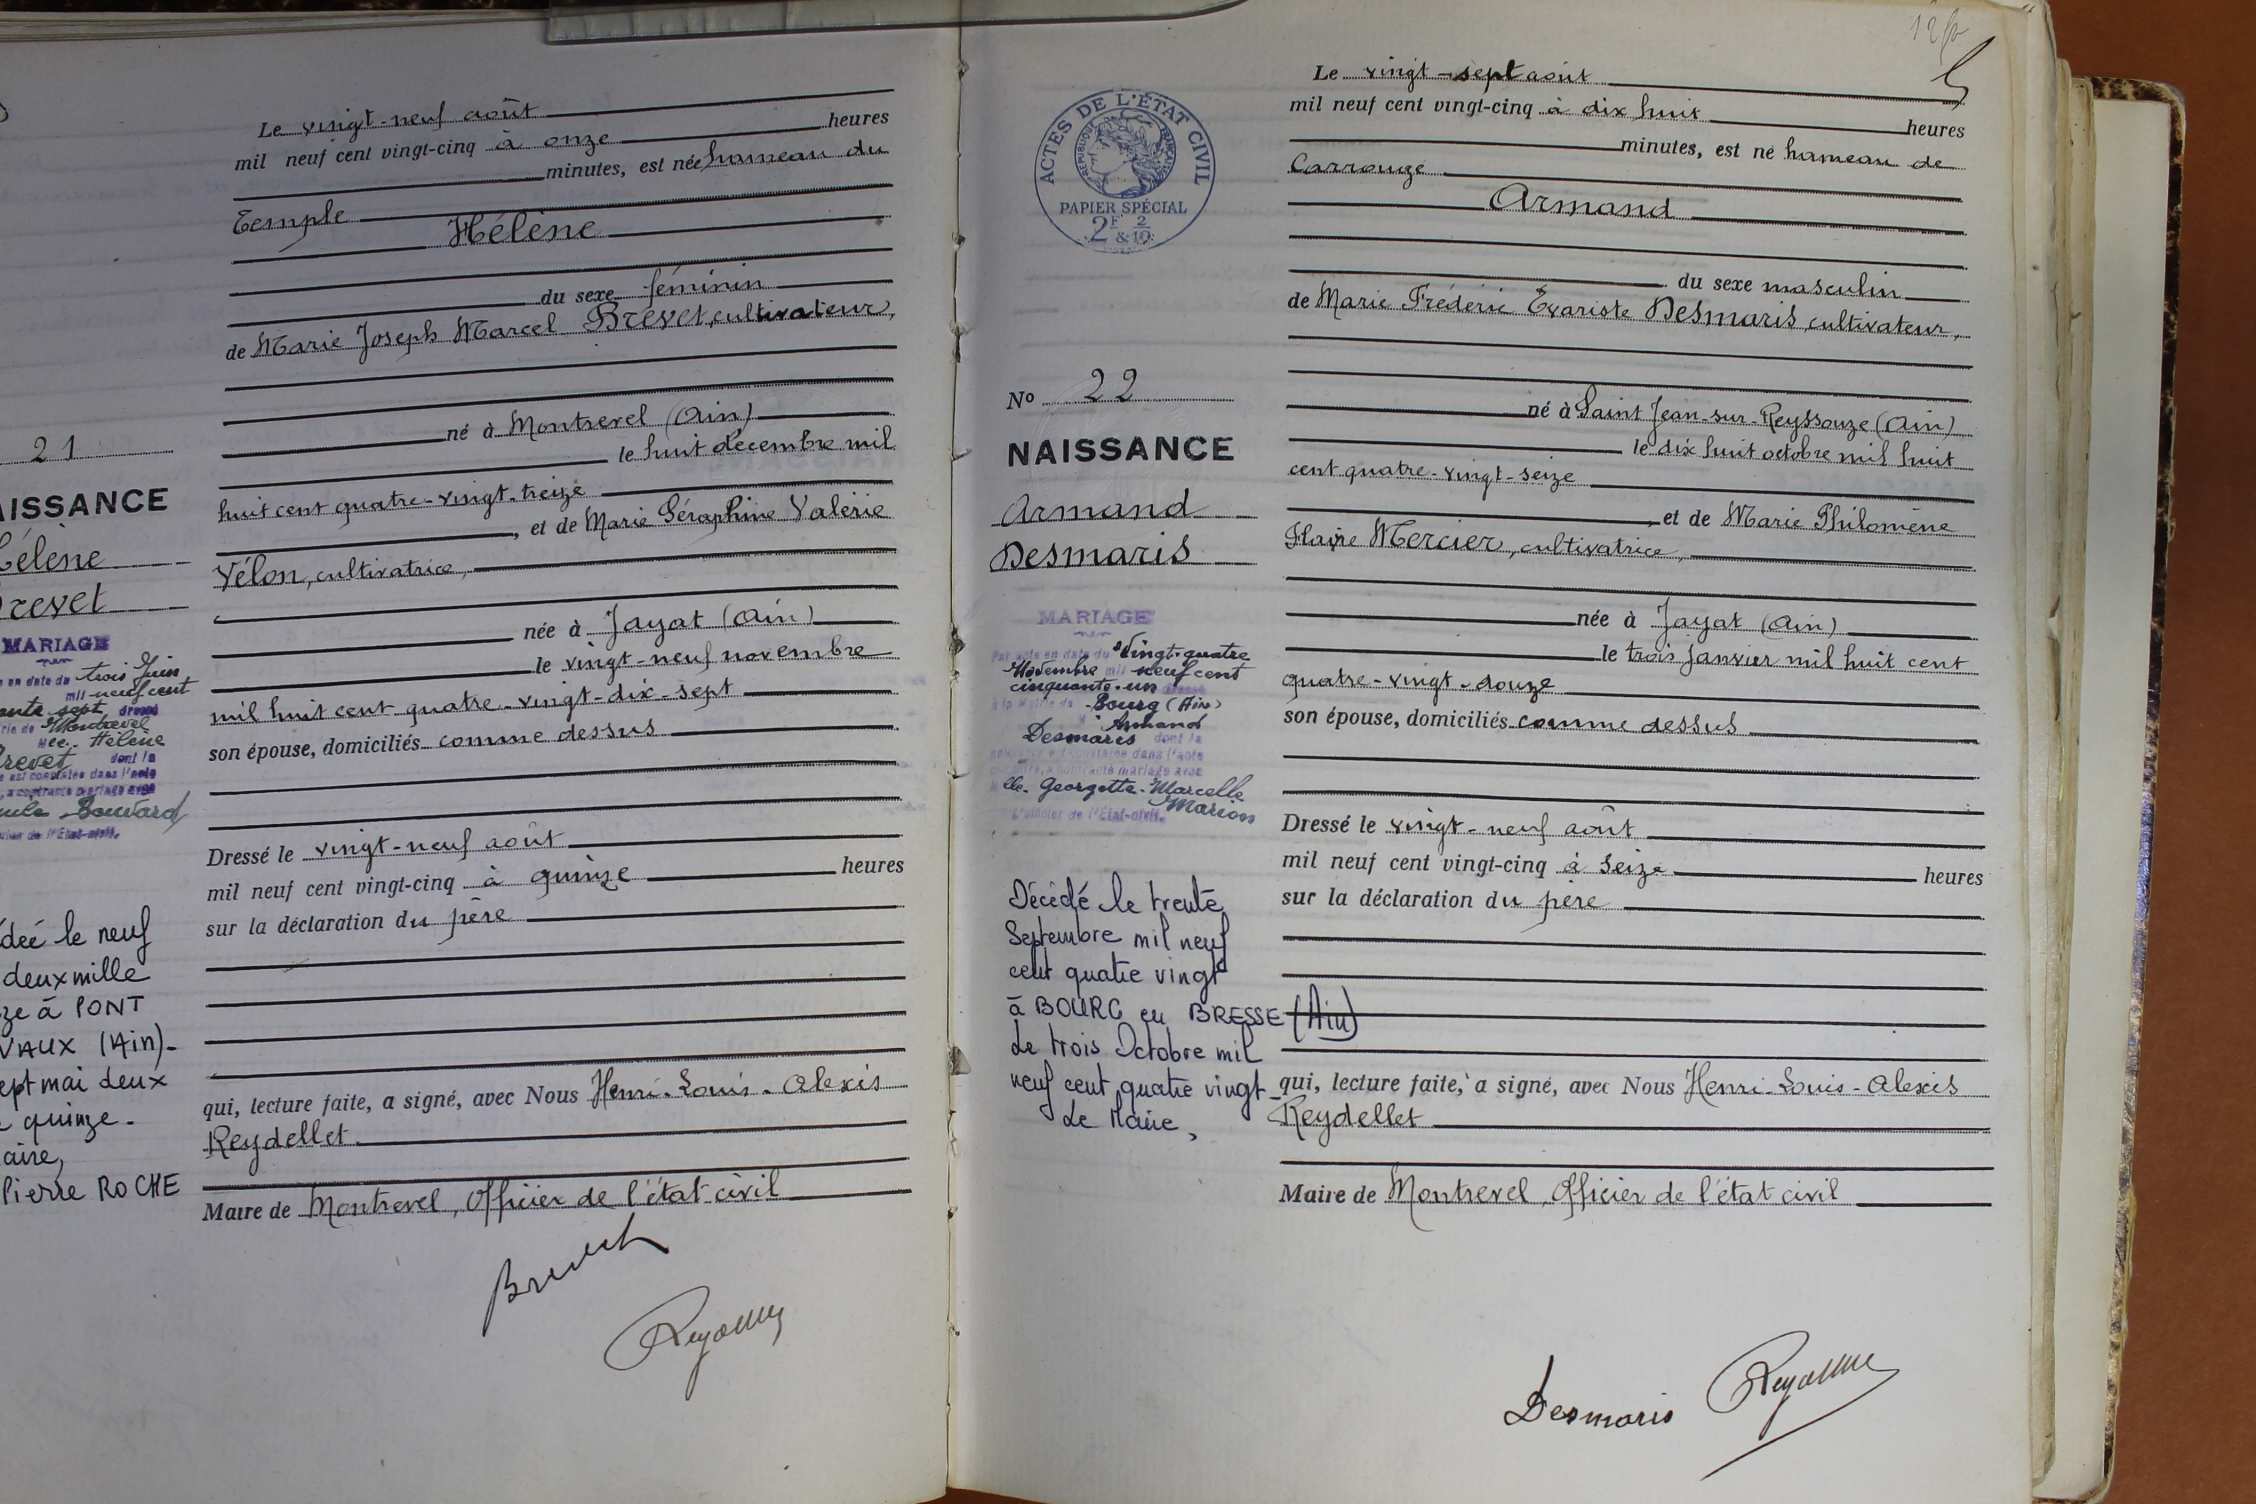 21
AISSANCE
Hélène
Brevet
MARIAGE
en date du trois Juin
mil neuf cent
sept dressé
rie de Montrevel
Hélène
revet dont la
e est constatée dans l'acte
, a contracté mariage avec
Bouvard
de l'État-civil.
dée le neuf
deux mille
ze à PONT
VAUX (Ain)-
ept mai deux
quinze.
aire,
Pierre ROCHE
Le vingt-neuf août
mil neuf cent vingt-cinq à onze heures
minutes, est née hameau du
Temple
Hélène
du sexe féminin
de Marie Joseph Marcel Brevet, cultivateur,
né à Montrevel (Ain)
le huit décembre mil
huit cent quatre-vingt-treize
, et de Marie Séraphine Valérie
Vélon, cultivatrice,
née à Jayat (Ain)
le vingt-neuf novembre
mil huit cent quatre-vingt-dix-sept
son épouse, domiciliés comme dessus
Dressé le vingt-neuf août
mil neuf cent vingt-cinq à quinze heures
sur la déclaration du père
qui, lecture faite, a signé, avec Nous Henri-Louis-Alexis
Reydellet
Maire de Montrevel, Officier de l'état civil
Brevet
ACTES DE L'ÉTAT CIVIL
RÉPUBLIQUE FRANÇAISE
PAPIER SPÉCIAL
2F & 2/10
No 22
NAISSANCE
Armand
Desmaris
MARIAGE
Par acte en date du Vingt-quatre
Novembre mil neuf cent
cinquante-un dressé
à la Mairie de Bourg (Ain)
M. Armand
Desmaris dont la
naissance est constatée dans l'acte
a contracté mariage avec
Mlle. Georgette-Marcelle
Marion
L'officier de l'État-civil.
Décédé le trente
Septembre mil neuf
cent quatre vingt
à BOURG en BRESSE (Ain)
Le trois Octobre mil
neuf cent quatre vingt-
Le Maire,
Le vingt-sept août
mil neuf cent vingt-cinq à dix huit heures
minutes, est né hameau de
Carrouge
Armand
du sexe masculin
de Marie Frédéric Evariste Desmaris, cultivateur,
né à Saint Jean-sur-Reyssouze (Ain)
le dix huit octobre mil huit
cent quatre-vingt-seize
, et de Marie Philomène
Mercier, cultivatrice,
née à Jayat (Ain)
le trois janvier mil huit cent
quatre-vingt-douze
son épouse, domiciliés comme dessus
Dressé le vingt-neuf août
mil neuf cent vingt-cinq à seize heures
sur la déclaration du père
qui, lecture faite, a signé, avec Nous Henri-Louis-Alexis
Reydellet
Maire de Montrevel, Officier de l'état civil
Desmaris